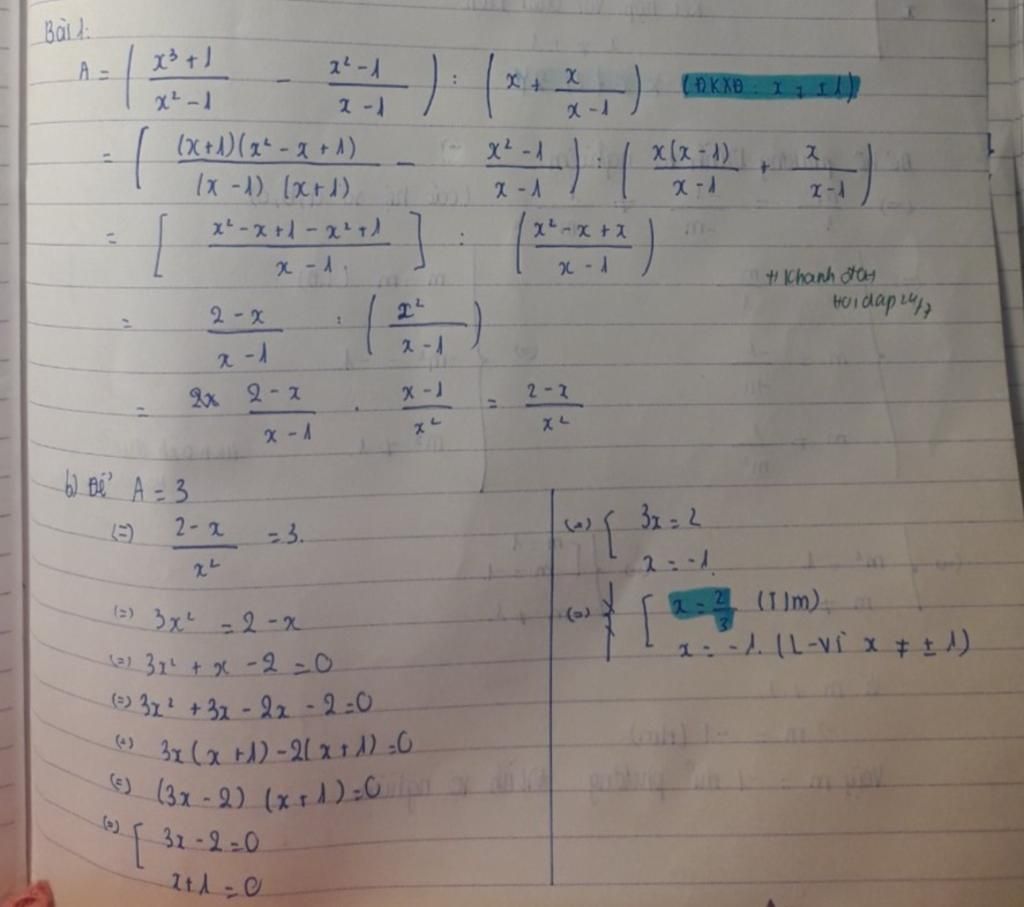 Bài 1:
A = ( (x³ + 1)/(x² - 1) - (x² - 1)/(x - 1) ) : ( x + x/(x - 1) ) (ĐKXĐ: x ≠ ±1)
= [ (x+1)(x² - x + 1)/(x - 1)(x+1) - (x² - 1)/(x - 1) ) : ( x(x - 1)/(x - 1) + x/(x - 1) )
= [ (x² - x + 1 - x² + 1)/(x - 1) ] : ( (x² - x + x)/(x - 1) )
+ Khanh
hoidap247
= (2 - x)/(x - 1) : ( x²/(x - 1) )
= 2x (2 - x)/(x - 1) . (x - 1)/x² = (2 - x)/x²
b) Để A = 3
(=) (2 - x)/x² = 3.
(=) 3x² = 2 - x
(=) 3x² + x - 2 = 0
(=) 3x² + 3x - 2x - 2 = 0
(=) 3x(x + 1) - 2(x + 1) = 0
(=) (3x - 2) (x + 1) = 0
(=) [ 3x - 2 = 0
x + 1 = 0
(=) { 3x = 2
x = -1.
(=) [ x = 2/3 (TM)
x = -1. (L - vì x ≠ ± 1)